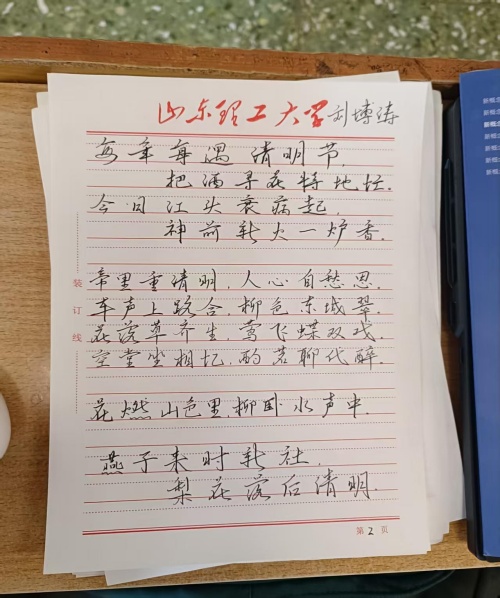 山东理工大学 刘博涛
每年每遇清明节,
把酒寻花特地忙.
今日江头衰病起,
神前新火一炉香.
帝里重清明,人心自愁思.
车声上路合,柳色东城翠.
花落草齐生,莺飞蝶双戏.
空堂坐相忆,酌茗聊代醉.
花燃山色里,柳卧水声中.
燕子来时新社,
梨花落后清明.
装
订
线
第 2 页
新概念
新概念
新概念
新概念
新概念
新概念